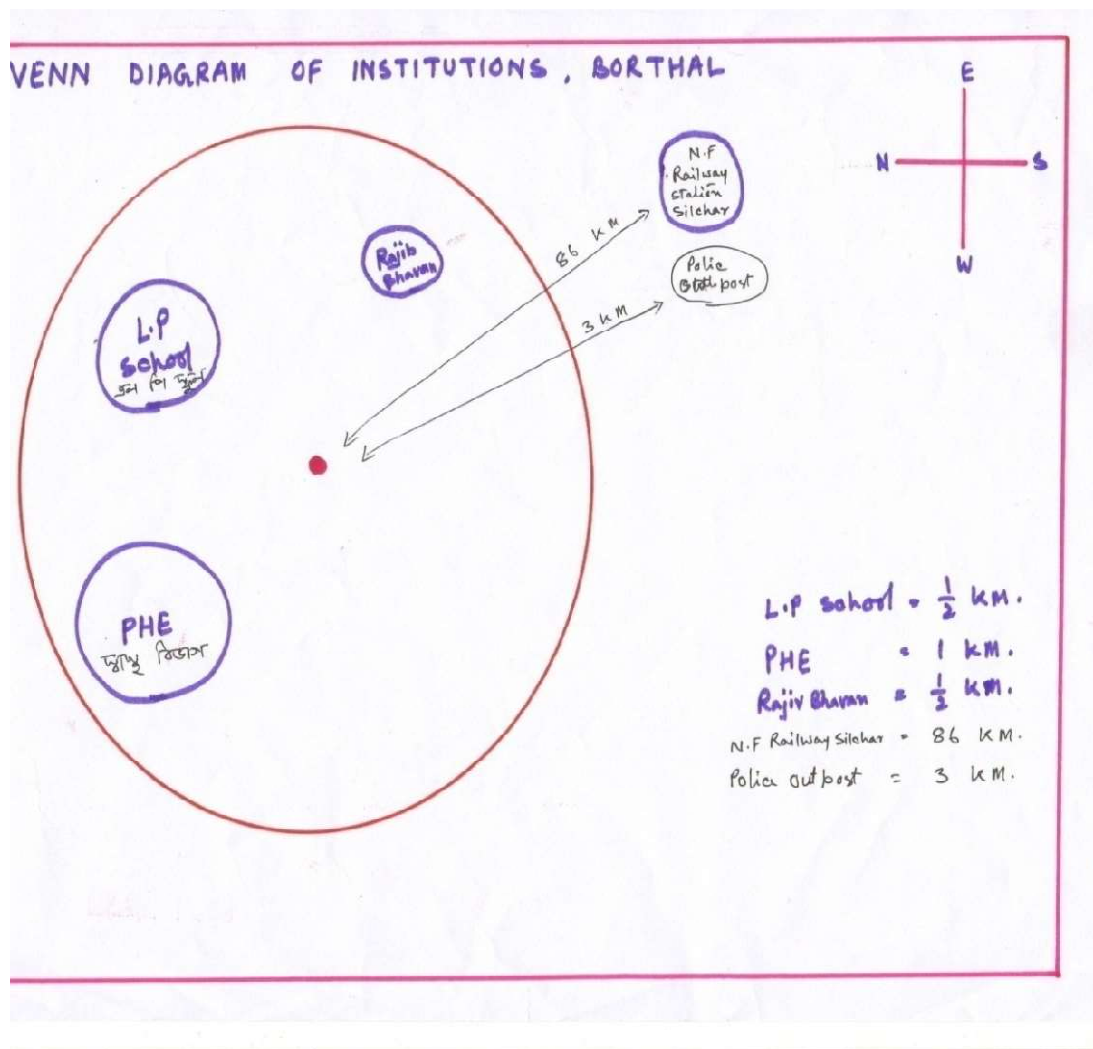 VENN DIAGRAM OF INSTITUTIONS, BORTHAL
E
N
S
W
N.F
Railway
station
Silchar
86 KM
Polic
post
3 KM
Rajib
Bhavan
L.P
School
এল পি স্কুল
PHE
বিভাগ
L.P School = 1/2 KM.
PHE = 1 KM.
Rajiv Bhavan = 1/2 KM.
N.F Railway Silchar = 86 KM.
Police outpost = 3 KM.